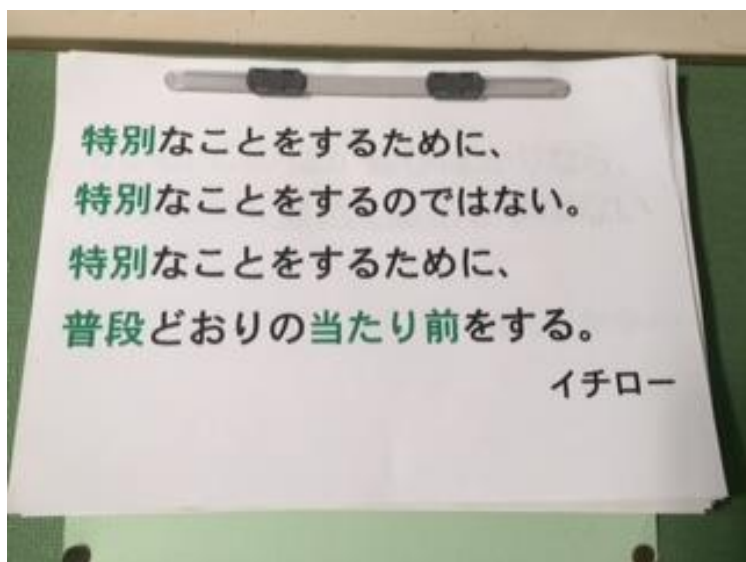 特別なことをするために、
特別なことをするのではない。
特別なことをするために、
普段どおりの当たり前をする。
イチロー